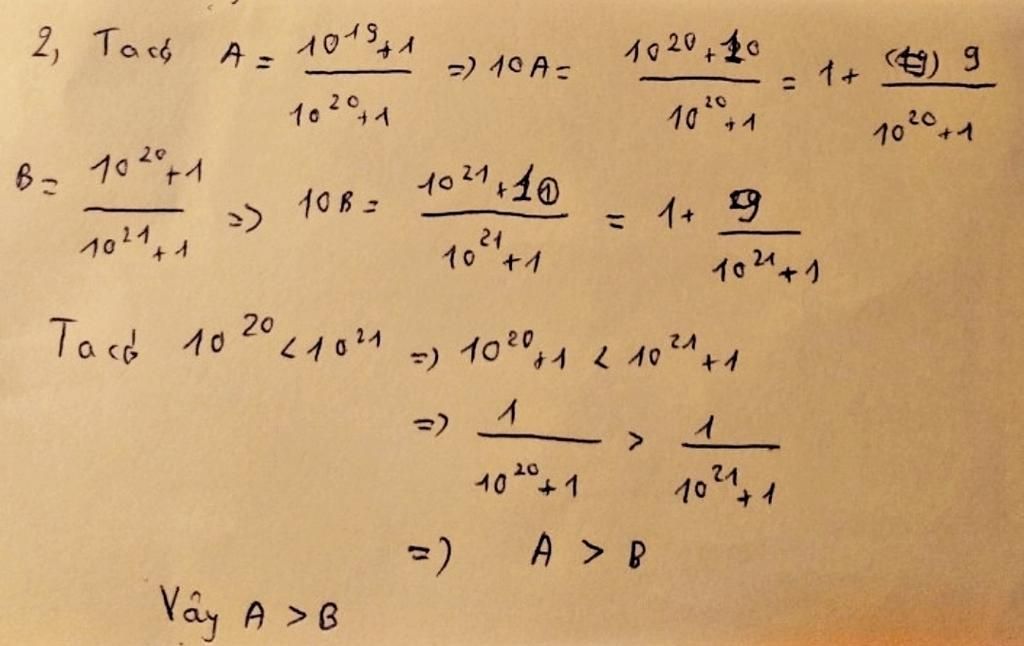 2, Ta có A = \frac{10^{19}+1}{10^{20}+1} => 10A = \frac{10^{20}+10}{10^{20}+1} = 1 + \frac{9}{10^{20}+1}
B = \frac{10^{20}+1}{10^{21}+1} => 10B = \frac{10^{21}+10}{10^{21}+1} = 1 + \frac{9}{10^{21}+1}
Ta có 10^{20} < 10^{21} => 10^{20}+1 < 10^{21}+1
=> \frac{1}{10^{20}+1} > \frac{1}{10^{21}+1}
=> A > B
Vây A > B